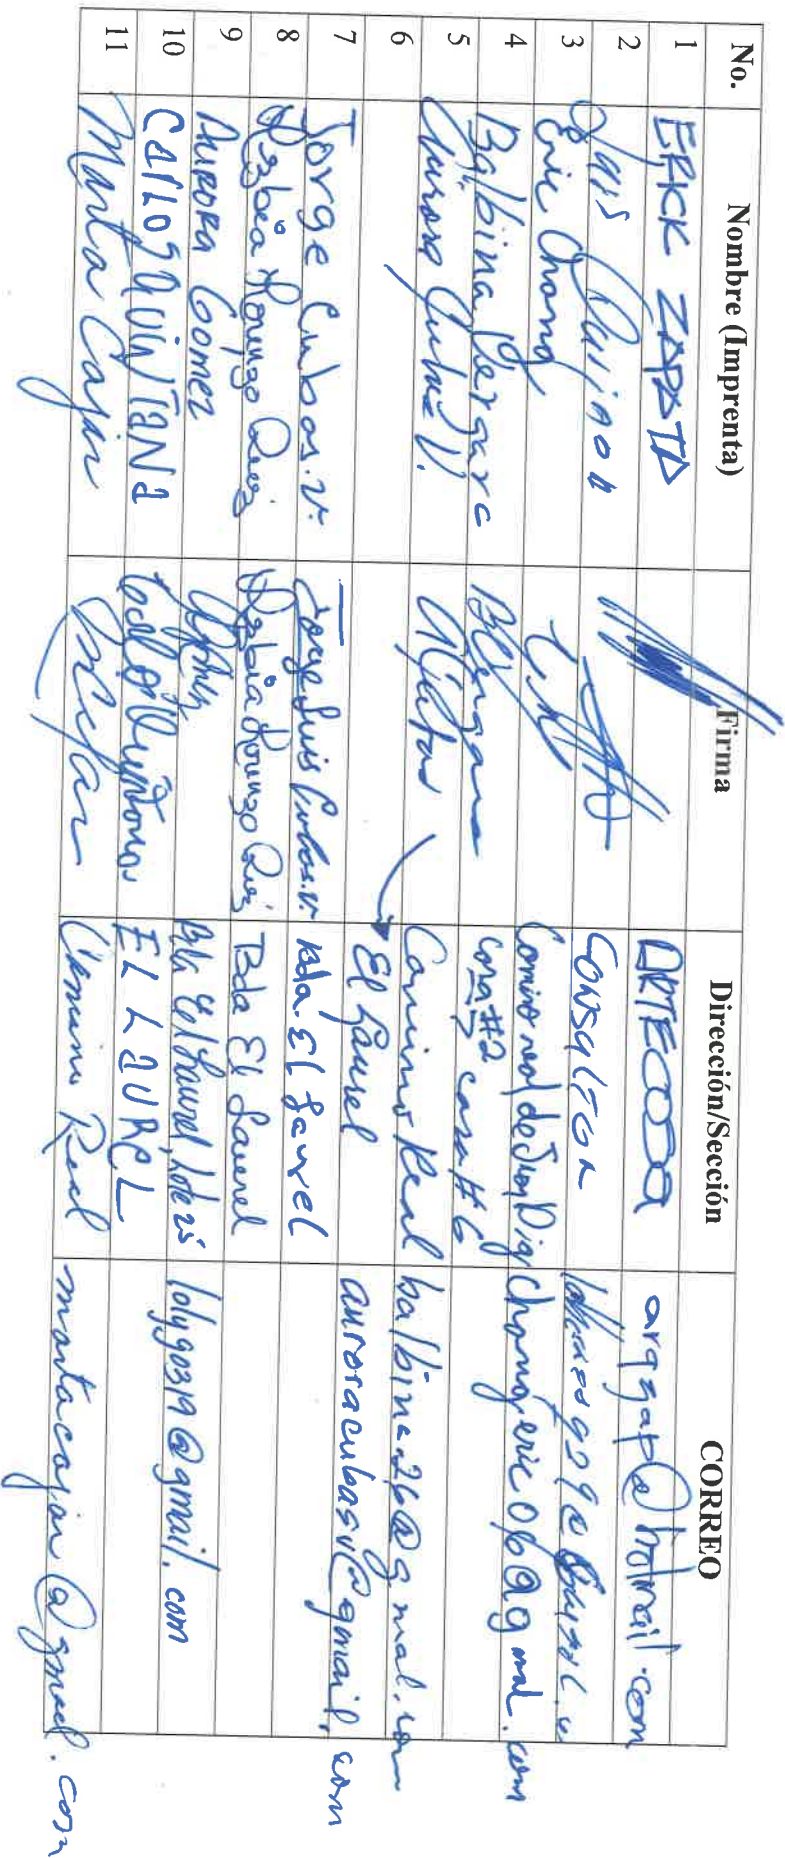 No. Nombre (Imprenta) Firma Dirección/Sección CORREO
1 ERICK ZAPATA ARTECOSA arqzap@hotmail.com
2 Luis Quijada Consultor
3 Eric Chong Camino real de San Dig chongeric06@gmal.com
4 Balbina Vergara BVergara casa #2 casa #6
5 Aurora Cubas V. Camino Real balbina26@gmal.com
6 El Laurel auroracubasv@gmail.com
7 Jorge Cubas.v. Jorge Luis Cubas.v. Bda. El Laurel
8 Lorenzo Lorenzo Bda El Laurel
9 Aurora Gomez Bda El Laurel, lote 25 lolyg0319@gmail.com
10 Carlos Quintana Carlos Quintana EL LAUREL
11 Marta Cajar MCajar Camino Real martacajar@gmail.com